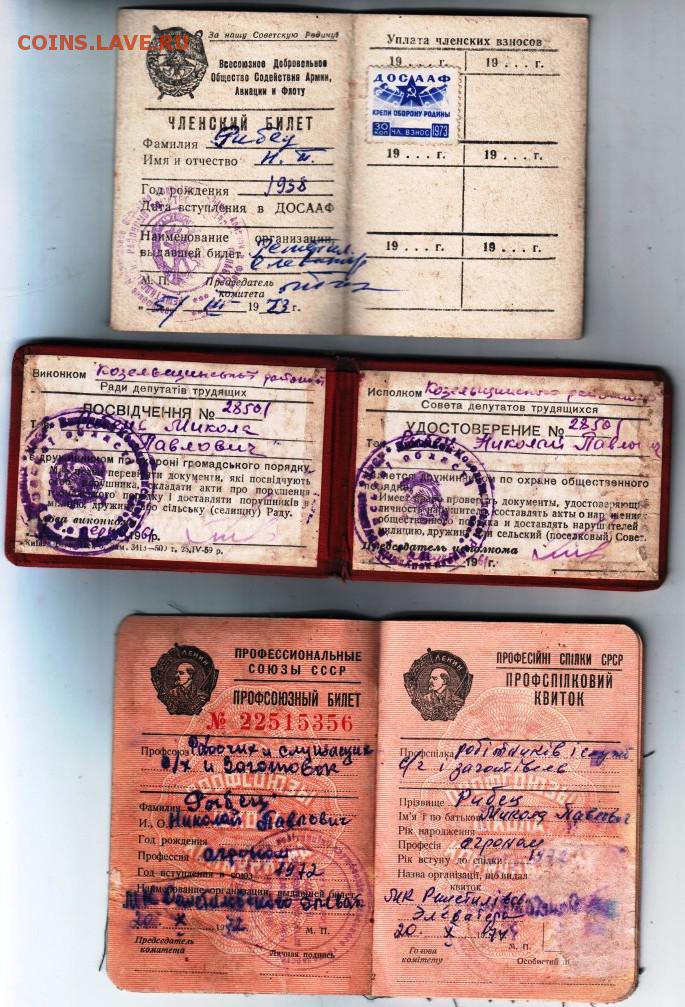 COINS.LAVE.RU
За нашу Советскую Родину!
Всесоюзное Добровольное
Общество Содействия Армии,
Авиации и Флоту
ЧЛЕНСКИЙ БИЛЕТ
Фамилия Рибец
Имя и отчество Н. П.
Год рождения 1938
Дата вступления в ДОСААФ
Наименование организации,
выдавшей билет
Элеватор
М. П. Председатель
комитета
III 1973 г.
Уплата членских взносов
19 . . . г. 19 . . . г.
ДОСААФ
КРЕПИ ОБОРОНУ РОДИНЫ
30 КОП ЧЛ. ВЗНОС 1973
19 . . . г. 19 . . . г.
19 . . . г. 19 . . . г.
Виконком Козельщинської районної
Ради депутатів трудящих
ПОСВІДЧЕННЯ № 28501
Микола
Павлович
є дружинником по охороні громадського порядку.
Має право перевіряти документи, які посвідчують
особу порушника, складати акти про порушення
громадського порядку і доставляти порушників в
міліцію, дружину або сільську (селищну) Раду.
Голова виконкому
1961
зам. 3413—50 т. 25.IV-59 р.
Исполком Козельщинского районного
Совета депутатов трудящихся
УДОСТОВЕРЕНИЕ № 28501
Тов. Николай Павлович
является дружинником по охране общественного
порядка.
Имеет право проверять документы, удостоверяющие
личность нарушителя, составлять акты о нарушении
общественного порядка и доставлять нарушителей
в милицию, дружину или сельский (поселковый) Совет.
Председатель исполкома
1961 г.
ЛЕНИН
ПРОФЕССИОНАЛЬНЫЕ
СОЮЗЫ СССР
ПРОФСОЮЗНЫЙ БИЛЕТ
№ 22515356
Профсоюз Рабочих и служащих
с/х и Заготовок
Фамилия Рыбец
И., О. Николай Павлович
Год рождения
Профессия агроном
Год вступления в союз 1972
Наименование организации, выдавшей билет
МК Решетиловского Элеват
20 X 1972
Председатель
комитета
М. П.
Личная подпись
ЛЕНИН
ПРОФЕСІЙНІ СПІЛКИ СРСР
ПРОФСПІЛКОВИЙ
КВИТОК
Профспілка робітників і служб
с/г і заготівель
Прізвище Рибец
Ім'я і по батькові Микола Павлович
Рік народження
Професія агроном
Рік вступу до спілки 1972
Назва організації, що видала
квиток
МК Решетилівс
Элеватора
20 X 197
Голова
комітету
М. П.
Особистий
2